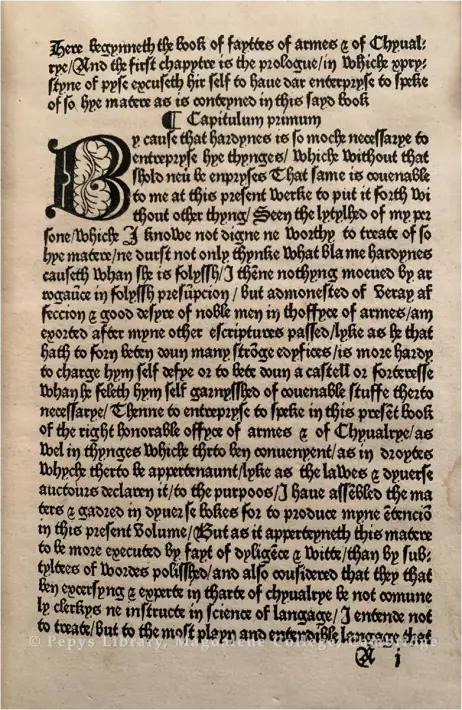 Here begynneth the book of fayttes of armes & of Chyual-
rye/And the first chapytre is the prologue/in whiche xpry-
styne of pyse excuseth hir self to haue dar enterpryse to speke
of so hye matere as is conteyned in this sayd book
¶ Capitulum primum
By cause that hardynes is so moche necessarye to
entrepryse hye thynges/ whiche without that
shold neuer be enpryses That same is couenable
to me at this present werke to put it forth wi
thout other thyng/ Seen the lytylhed of my per
sone/whiche I knowe not digne ne worthy to treate of so
hye matere/ne durst not only thynke what blame hardynes
causeth whan she is folyssh/I thēne nothyng moeued by ar
rogaūce in folyssh presūpcion/ but admonested of veray af
feccion & good desyre of noble men in thoffyce of armes/am
exorted after myne other escriptures passed/lyke as he that
hath to forn beten doun many strōge edyfices/is more hardy
to charge hym self defye or to bete doun a castell or forteresse
whan he feleth hym self garnysshed of couenable stuffe therto
necessarye/ Thenne to entrepryse to speke in this presēt book
of the right honorable offyce of armes & of Chyualrye/as
wel in thynges whiche therto ben conuenyent/as in droytes
whyche therto be appertenaunt/lyke as the lawes & dyuerse
auctours declaren it/to the purpoos/I haue assēbled the ma
ters & gadred in dyuerse bokes for to produce myne ētenciō
in this present volume/But as it apperteyneth this matere
to be more executed by fayt of dylygēce & witte/than by sub-
tyltees of wordes polisshed/and also considered that they that
ben excersyng & experte in tharte of chyualrye be not comune
ly clerkys ne instructe in science of langage/ I entende not
to treate/but to the most playn and entendible langage that
A j
© Pepys Library, Magdalene College, Cambridge